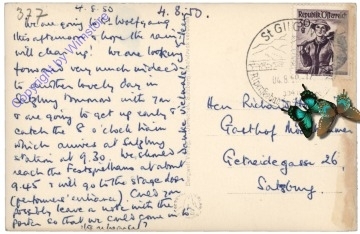 327
4.8.50
4.8.50
We are going to St. Wolfgang
this afternoon & hope the rain
will clear up! We are looking
forward very much indeed
to another lovely day in
Salzburg tomorrow with you
& are going to get up early &
catch the 8 o'clock train
which arrives at Salzburg
station at 9.30. We should
reach the Festspielhaus at about
9.45 & will go to the stage door
(performers' entrance). Could you
possibly leave a note with the
porter so that we could go in to
REPUBLIK ÖSTERREICH
ST. GILGEN
Herrn Richard
Gasthof
Getreidegasse 26
Salzburg